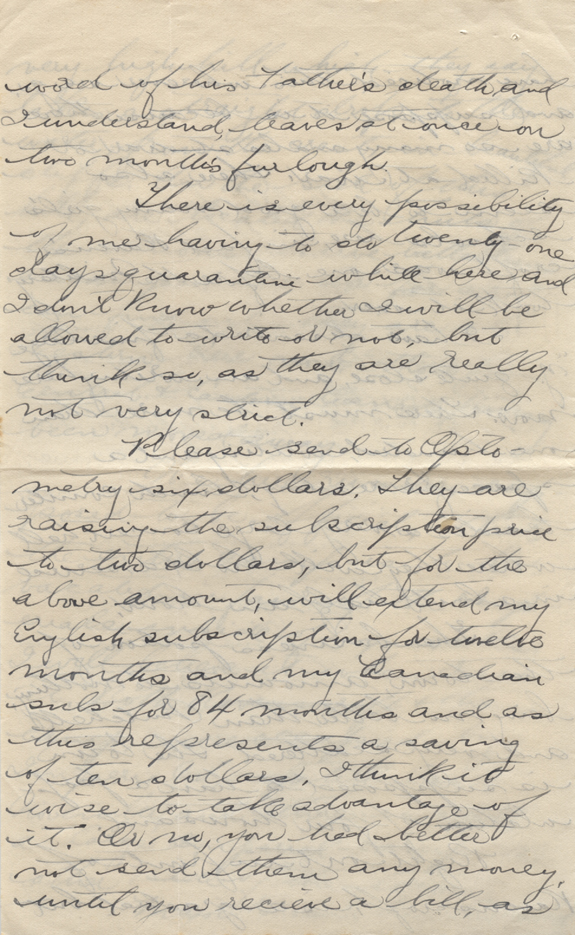 word of his Father's death, and
I understand, leaves at once on
two month's furlough.
There is every possibility
of me having to do twenty-one
days quarantine while here and
I don't know whether I will be
allowed to write or not, but
think so, as they are really
not very strict.
Please send to Opto-
metry six dollars. They are
raising the subscription price
to two dollars, but for the
above amount, will extend my
English subscription for twelve
months and my Canadian
subs for 84 months and as
this represents a saving
of ten dollars, I think it
wise to take advantage of
it. Or no, you had better
not send them any money,
until you recieve a bill, as